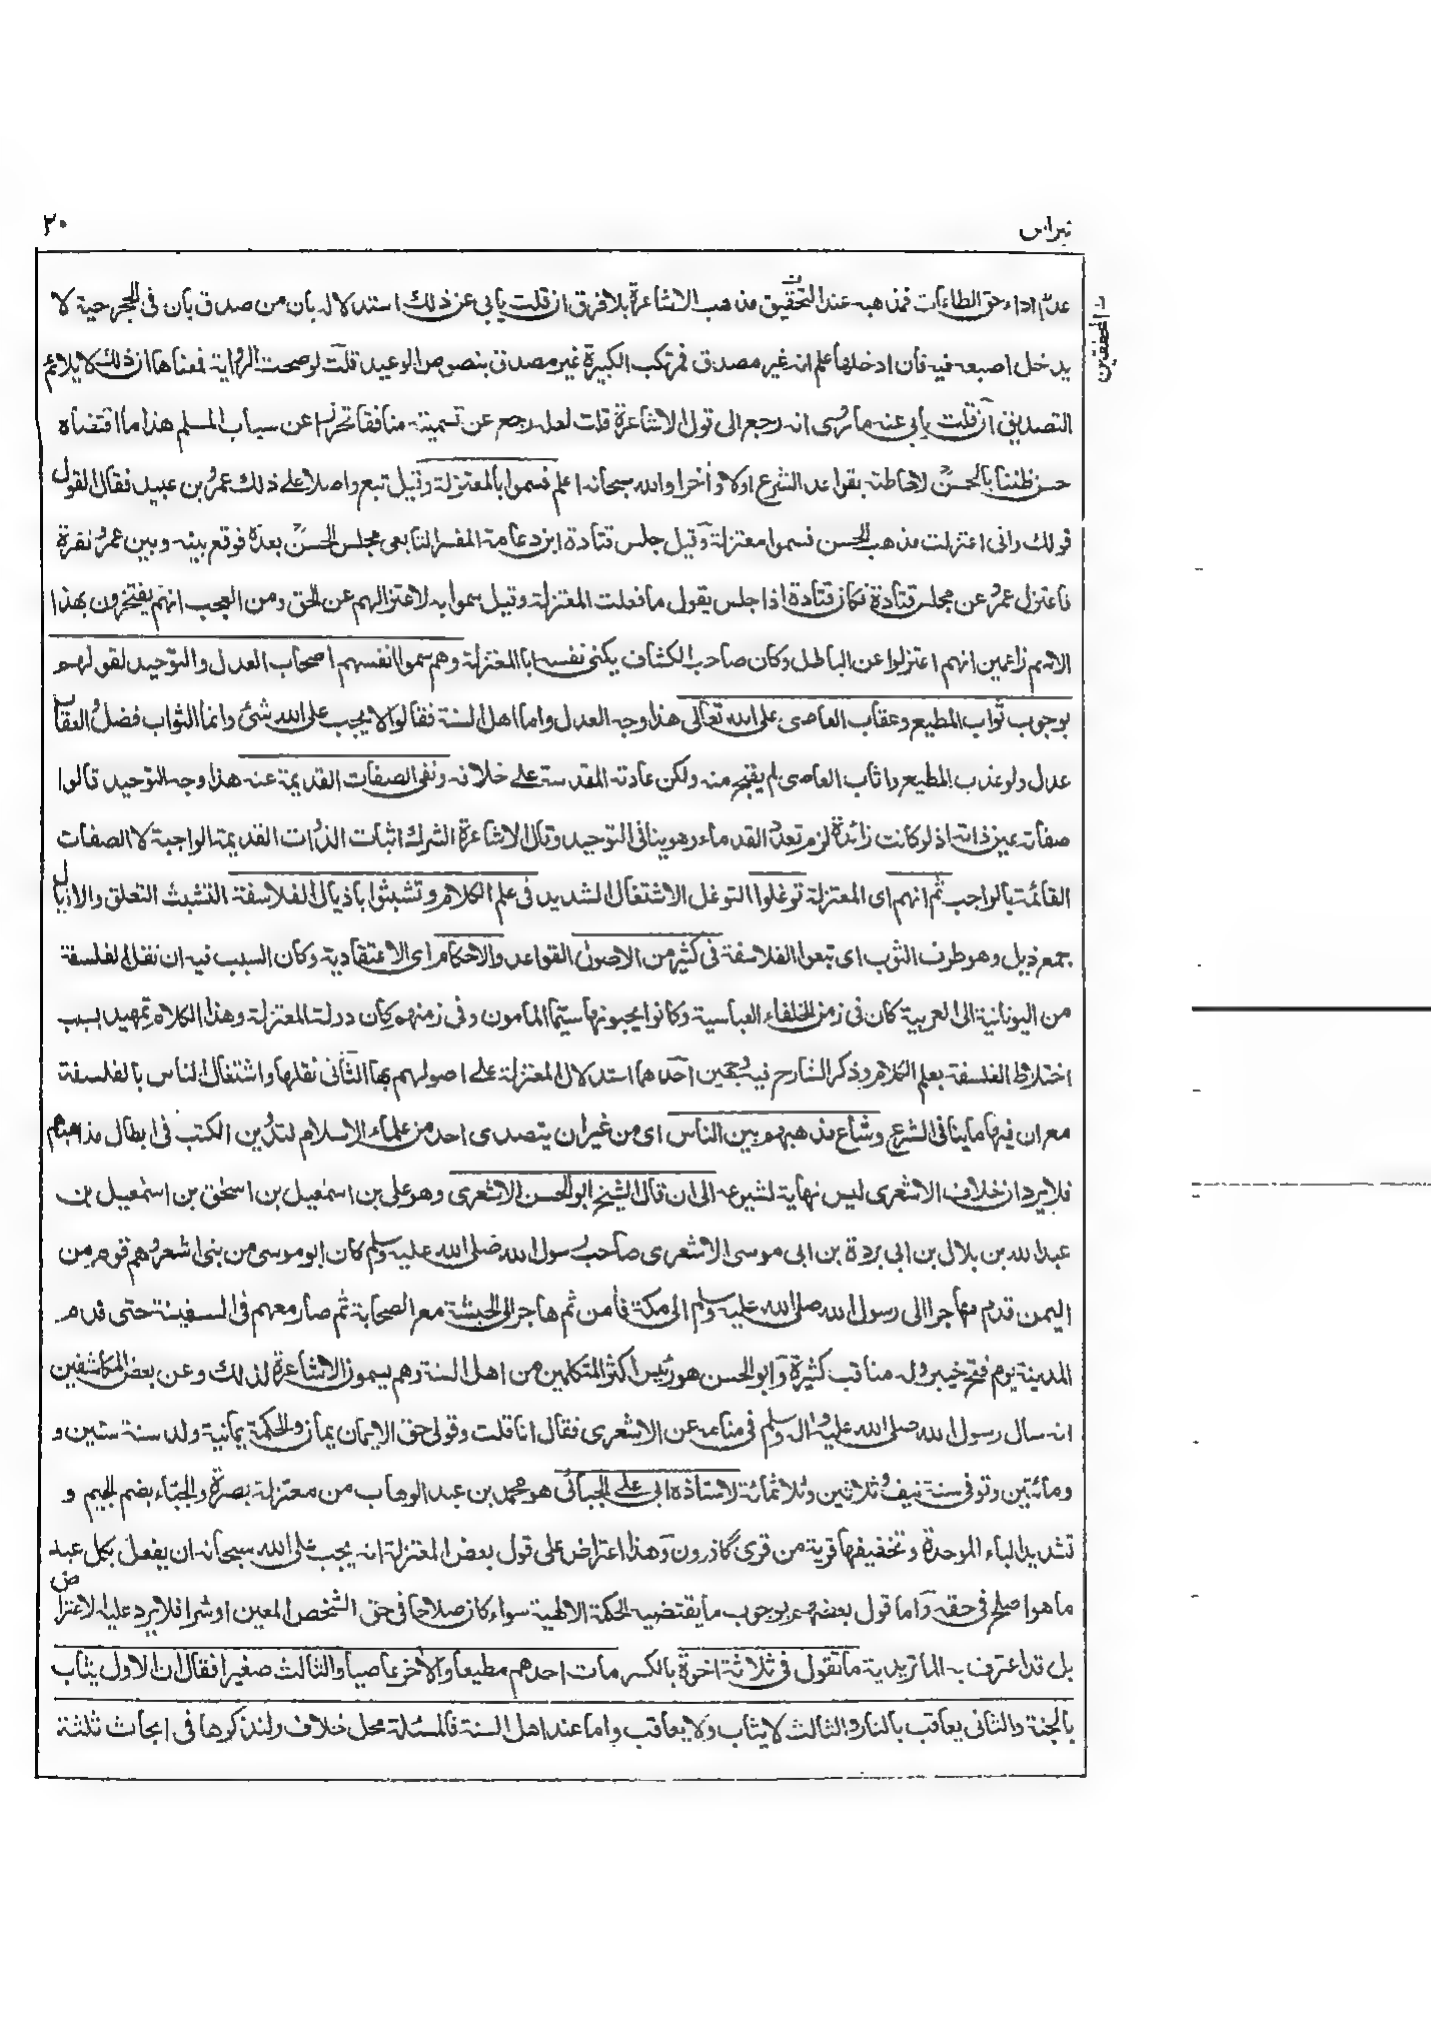 نبراس ٢٠
عدم اداء حق الطاعات فمذهبه عند التحقيق مذهب الاشاعرة بلا فرق ان قلت يابى عن ذلك استدلاله بان من صدق بان فى الجحر حية لا
ن المحققين
يدخل اصبعه فيه فان ادخلها علم انه غير مصدق فمرتكب الكبيرة غير مصدق بنصوص الوعيد قلت لو صحت الرواية فمعناها ان ذلك لا يلائم
التصديق ان قلت يابى عنه ما رُسى انه رجع الى قول الاشاعرة قلت لعله رجع عن تسميته منافقا تحرزا عن سباب المسلم هذا ما اقتضاه
حسن ظننا بالحسن لاحاطته بقواعد الشرع اولا وأخرا والله سبحانه اعلم فسموا بالمعتزلة وقيل تبع واصلا على ذلك عمرُو بن عبيد فقال القول
قولك وانى اعتزلت مذهب الحسن فسموا معتزلة وقيل جلس قتادة ابن دعامة المفسر التابعى مجلس الحسن بعده فوقع بينه وبين عمرو نفرة
فاعتزل عمرو عن مجلس قتادة فكان قتادة اذا جلس يقول ما فعلت المعتزلة وقيل سموا به لاعتزالهم عن الحق ومن العجب انهم يفتخرون بهذا
الاسم زاعمين انهم اعتزلوا عن الباطل وكان صاحب الكشاف يكنى نفسه ابا المعتزلة وهم سموا انفسهم اصحاب العدل والتوحيد لقولهم
بوجوب ثواب المطيع وعقاب العاصى على الله تعالى هذا وجه العدل واما اهل السنة فقالوا لا يجب على الله شئ وانما الثواب فضل والعقاب
عدل ولو عذب المطيع واثاب العاصى لم يقبح منه ولكن عادته المقدسة على خلافه ونفى الصفات القديمة عنه هذا وجه التوحيد قالوا
صفاته عين ذاته اذ لو كانت زائدة لزم تعدد القدماء وهو ينافى التوحيد وقال الاشاعرة الشرك اثبات الذوات القديمة الواجبة لا الصفات
القائمة بالواجب ثم انهم اى المعتزلة توغلوا التوغل الاشتغال الشديد فى علم الكلام وتشبثوا باذيال الفلاسفة التشبث التعلق والاذيال
جمع ذيل وهو طرف الثوب اى تبعوا الفلاسفة فى كثير من الاصول القواعد والاحكام اى الاعتقادية وكان السبب فيه ان نقل الفلسفة
من اليونانية الى العربية كان فى زمن الخلفاء العباسية وكانوا يحبونها سيما المامون وفى زمنهم كان دولة المعتزلة وهذا الكلام تمهيد بسبب
اختلاط الفلسفة بعلم الكلام وذكر الشارح فيه وجهين احدهما استدلال المعتزلة على اصولهم بها الثانى نقلها واشتغال الناس بالفلسفة
مع ان فيها ما ينافى الشرع وشاع مذهبهم بين الناس اى من غير ان يتصدى احد من علماء الاسلام لتدوين الكتب فى ابطال مذاهبهم
فلا يرد ان خلاف الاشعرى ليس نهاية لشيوعه الى ان قال الشيخ ابو الحسن الاشعرى وهو على بن اسمٰعيل بن اسحٰق بن اسمٰعيل بن
عبد الله بن بلال بن ابى بردة بن ابى موسى الاشعرى صاحب رسول الله صلى الله عليه وسلم كان ابو موسى من بنى اشعر وهم قوم من
اليمن قدم مهاجرا الى رسول الله صلى الله عليه وسلم الى مكة فأمن ثم هاجر الى الحبشة مع الصحابة ثم صار معهم فى السفينة حتى قدم
المدينة يوم فتح خيبر وله مناقب كثيرة وابو الحسن هو رئيس اكثر المتكلمين من اهل السنة وهم يسمون الاشاعرة لذلك وعن بعض المكاشفين
انه سال رسول الله صلى الله عليه واله وسلم فى منامه عن الاشعرى فقال انا قلت وقولى حق الايمان يمان والحكمة يمانية ولد سنة ستين و
ومائتين وتوفى سنة نيف وثلاثين وثلاثمائة لاستاذه ابى على الجبائى هو محمد بن عبد الوهاب من معتزلة بصرة والجباء بضم الجيم و
تشديد الباء الموحدة وتخفيفها قرية من قرى گاذرون وهذا اعتراض على قول بعض المعتزلة انه يجب على الله سبحانه ان يفعل بكل عبد
ما هو اصلح فى حقه واما قول بعضهم بوجوب ما يقتضيه الحكمة الالهية سواء كان صلاحا فى حق الشخص المعين او شرا فلا يرد عليه الاعتراض
بل قد اعترف به الماتريدية ما تقول فى ثلاثة اخوة بالكسر مات احدهم مطيعا والأخر عاصيا والثالث صغيرا فقال ان الاول يثاب
بالجنة والثانى يعاقب بالنار والثالث لا يثاب ولا يعاقب واما عند اهل السنة فالمسئلة محل خلاف ولنذكرها فى ابحاث ثلثة